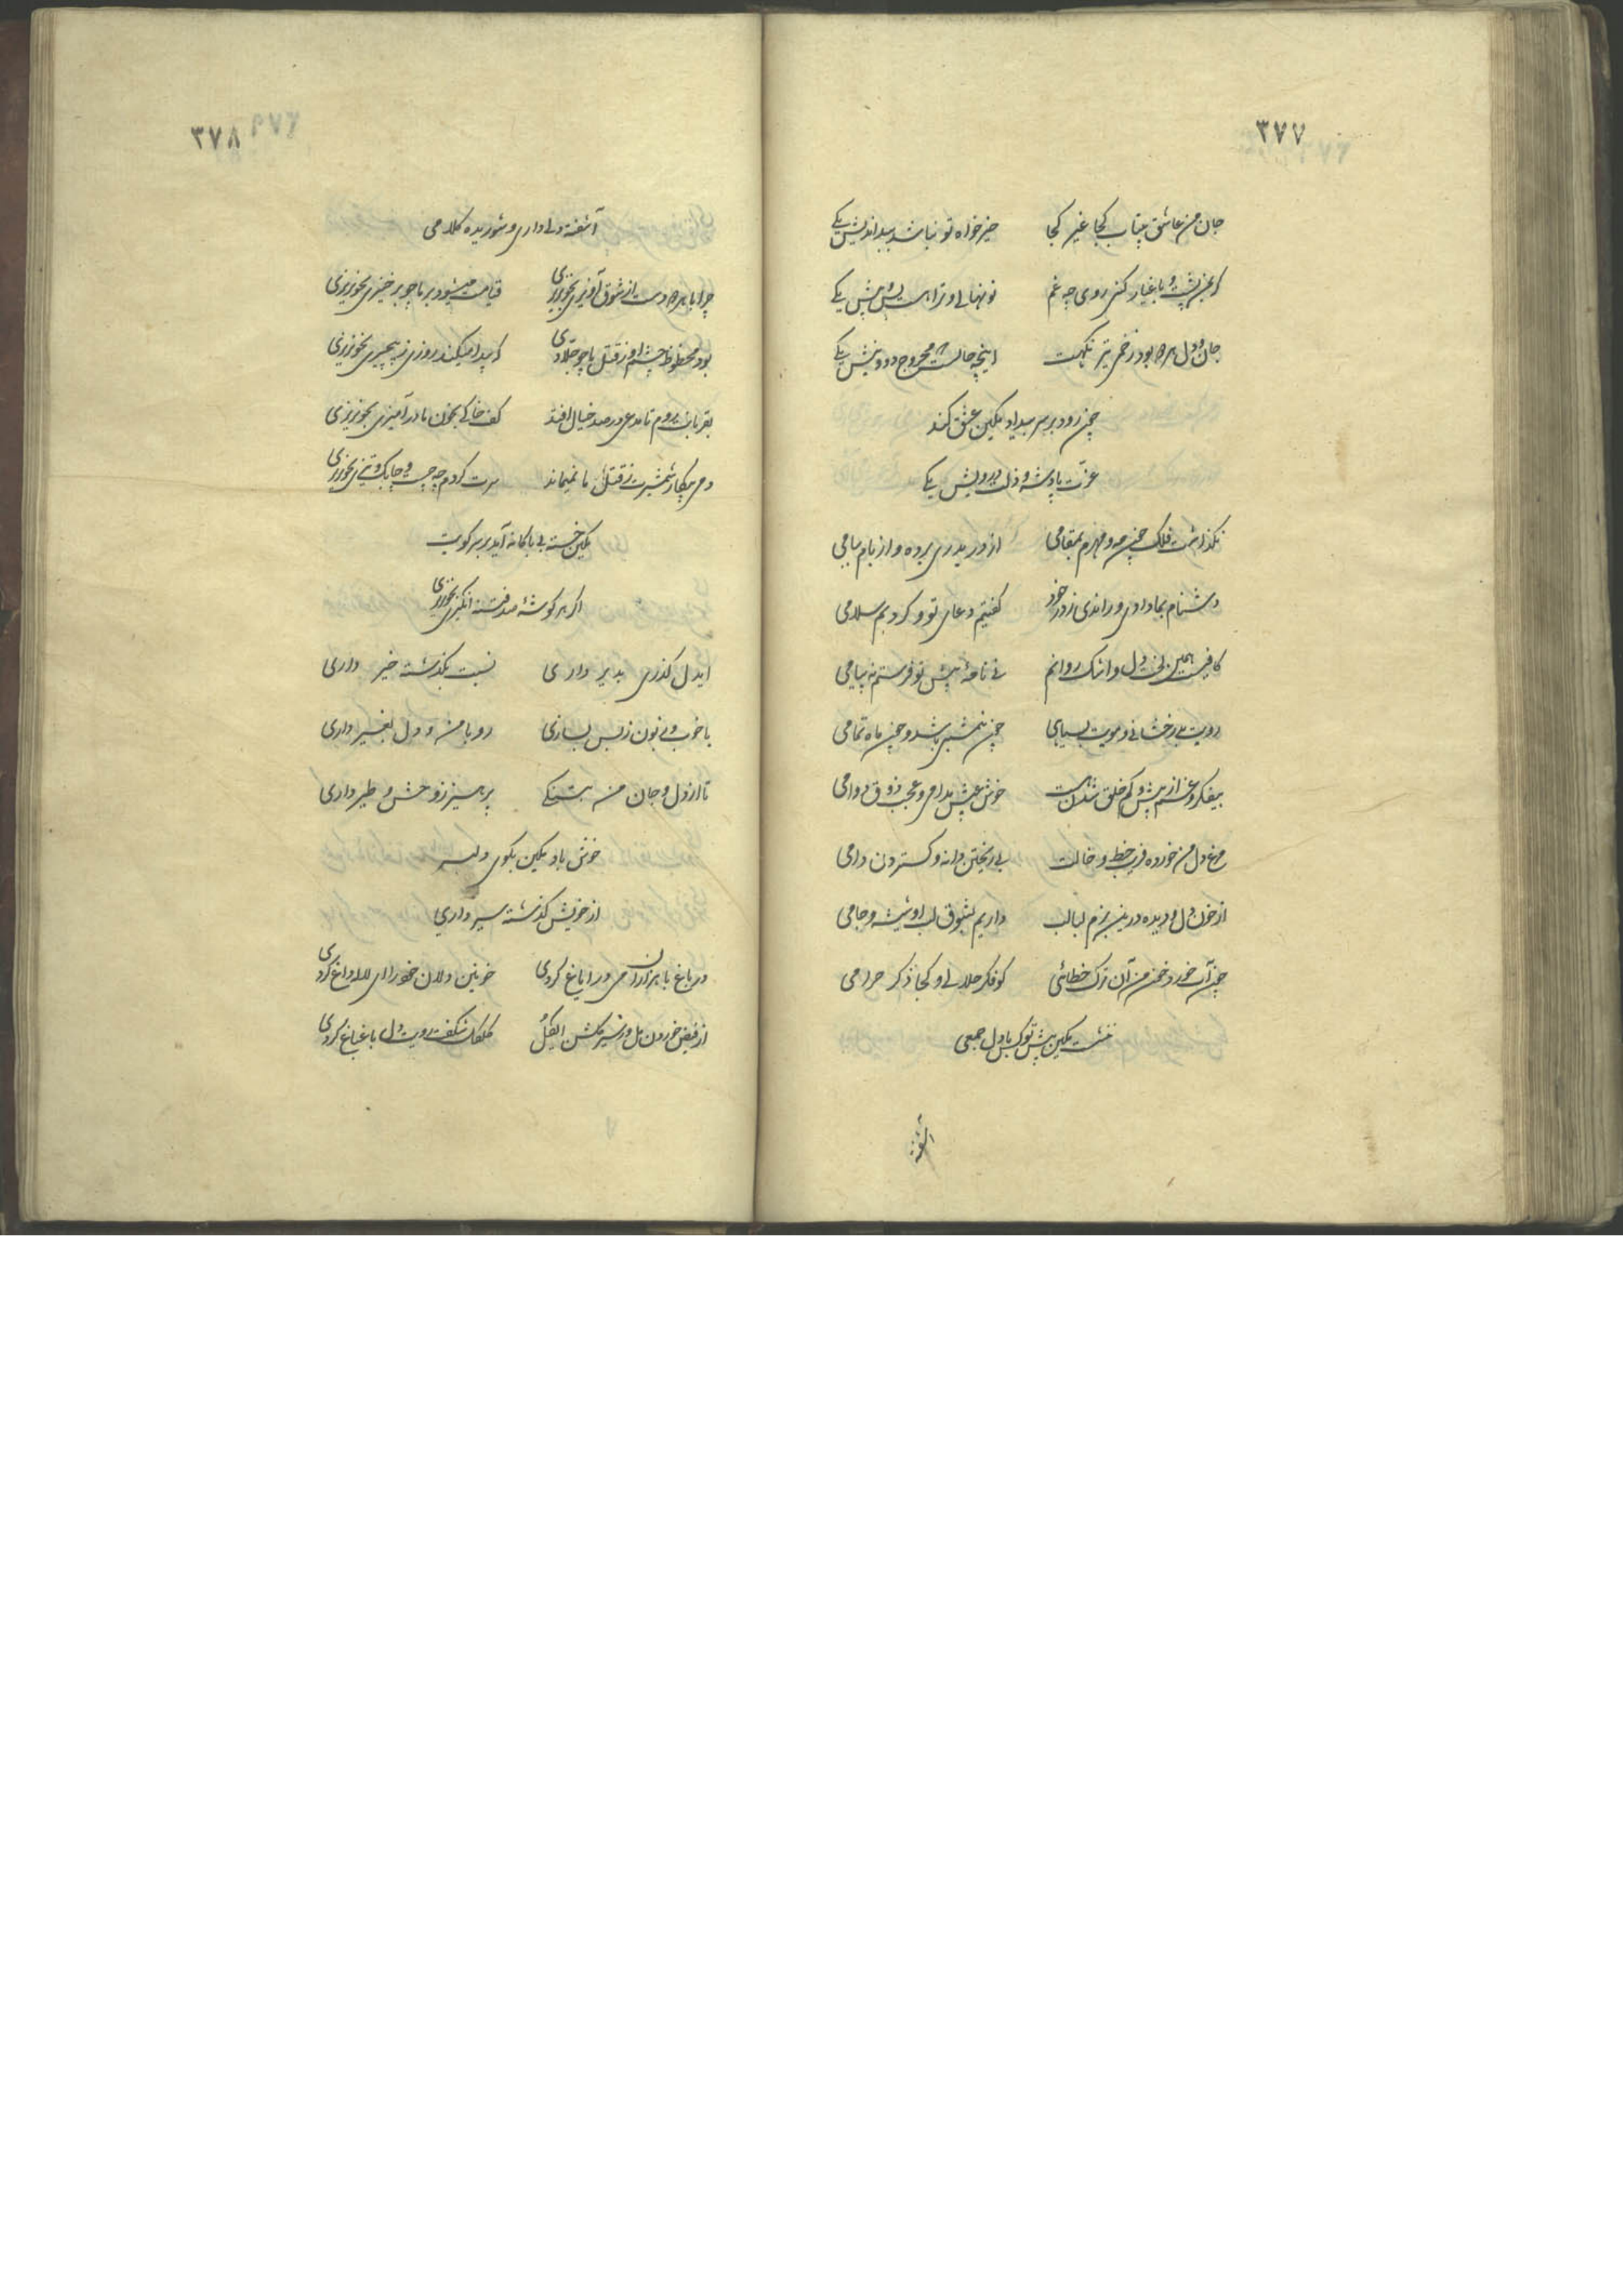 ۳۷۷
جان من عاشق بیتاب کجا غیر کجا خیرخواه تو نباشد ببداندیش یکی
گر بمن پشت و باغیار کنی روی چه غم
جان و دل هر دو بود زخمی تیر نگهت اینچه حالست مجروح دو و نیش یکی
چون رود بر سر بیداد بکین عشق کند
عزت پادشه و ذلت درویش یکی
نگذاشت فلک چون مه و مهرم بمقامی از در بدری برده و از بام ببامی
دشنام بما دادی و راندی ز در خود گفتیم دعای تو و کردیم سلامی
کافیست همین لخت دل و اشک روانم نی نامه پیش تو فرستم نه پیامی
رویت بدرخشانی و مویت بسیاهی چون شمشیر باشد و چون ماه تمامی
بیفکر و غم از بیش و کم خلق شدن است خوش عیش مدامی و عجب ذوق دوامی
مرغ دل من خورده فریب خط و خالت بی ریختن دانه و گستردن دامی
از خون دل و دیده درین بزم لبالب داریم بشوق لب او شیشه و جامی
چون آب خورد خون من آن ترک خطائی کو فکر حلالی و کجا ذکر حرامی
ننشست بکین پیش تو کس با دل جمعی
آشفته
۳۷۸
آشفته دلی داری و شوریده کلامی
چرا با هر دو دست از شوق آویزی بخونریزی قیامت میشود بر ما چو برخیزی بخونریزی
بود محظوظ چشم او ز قتل ما چو جلادی که پیدا میکند روزی ز بیچیزی بخونریزی
بقربانت روم تا مدعی در صد خیال افتد کف خاکی بخون ما درآمیزی بخونریزی
دمی بیکار شمشیرت ز قتل ما نمیماند سرت گردم چه چست و چابک و تیزی بخونریزی
بکین خسته بی باکانه آید بر سر کویت
اگر هر گوشه صد فتنه انگیزی بخونریزی
ایدل گذری بدیر داری نسبت بگذشته خیر داری
با خوب و زبون ز بس بسازی رو با من و دل بغیر داری
تا از دل و جان من سگی پرهیز ز وحش و طیر داری
خوش باد بکین بکوی دلبر
از خویش گذشته سیر داری
در باغ با هزاران می در ایاغ کردی خونین دلان خود را ای لاله داغ کردی
از فیض خوردن مل در سیر گلشن ای گل گل گل شکفت رویت دل باغ باغ کردی